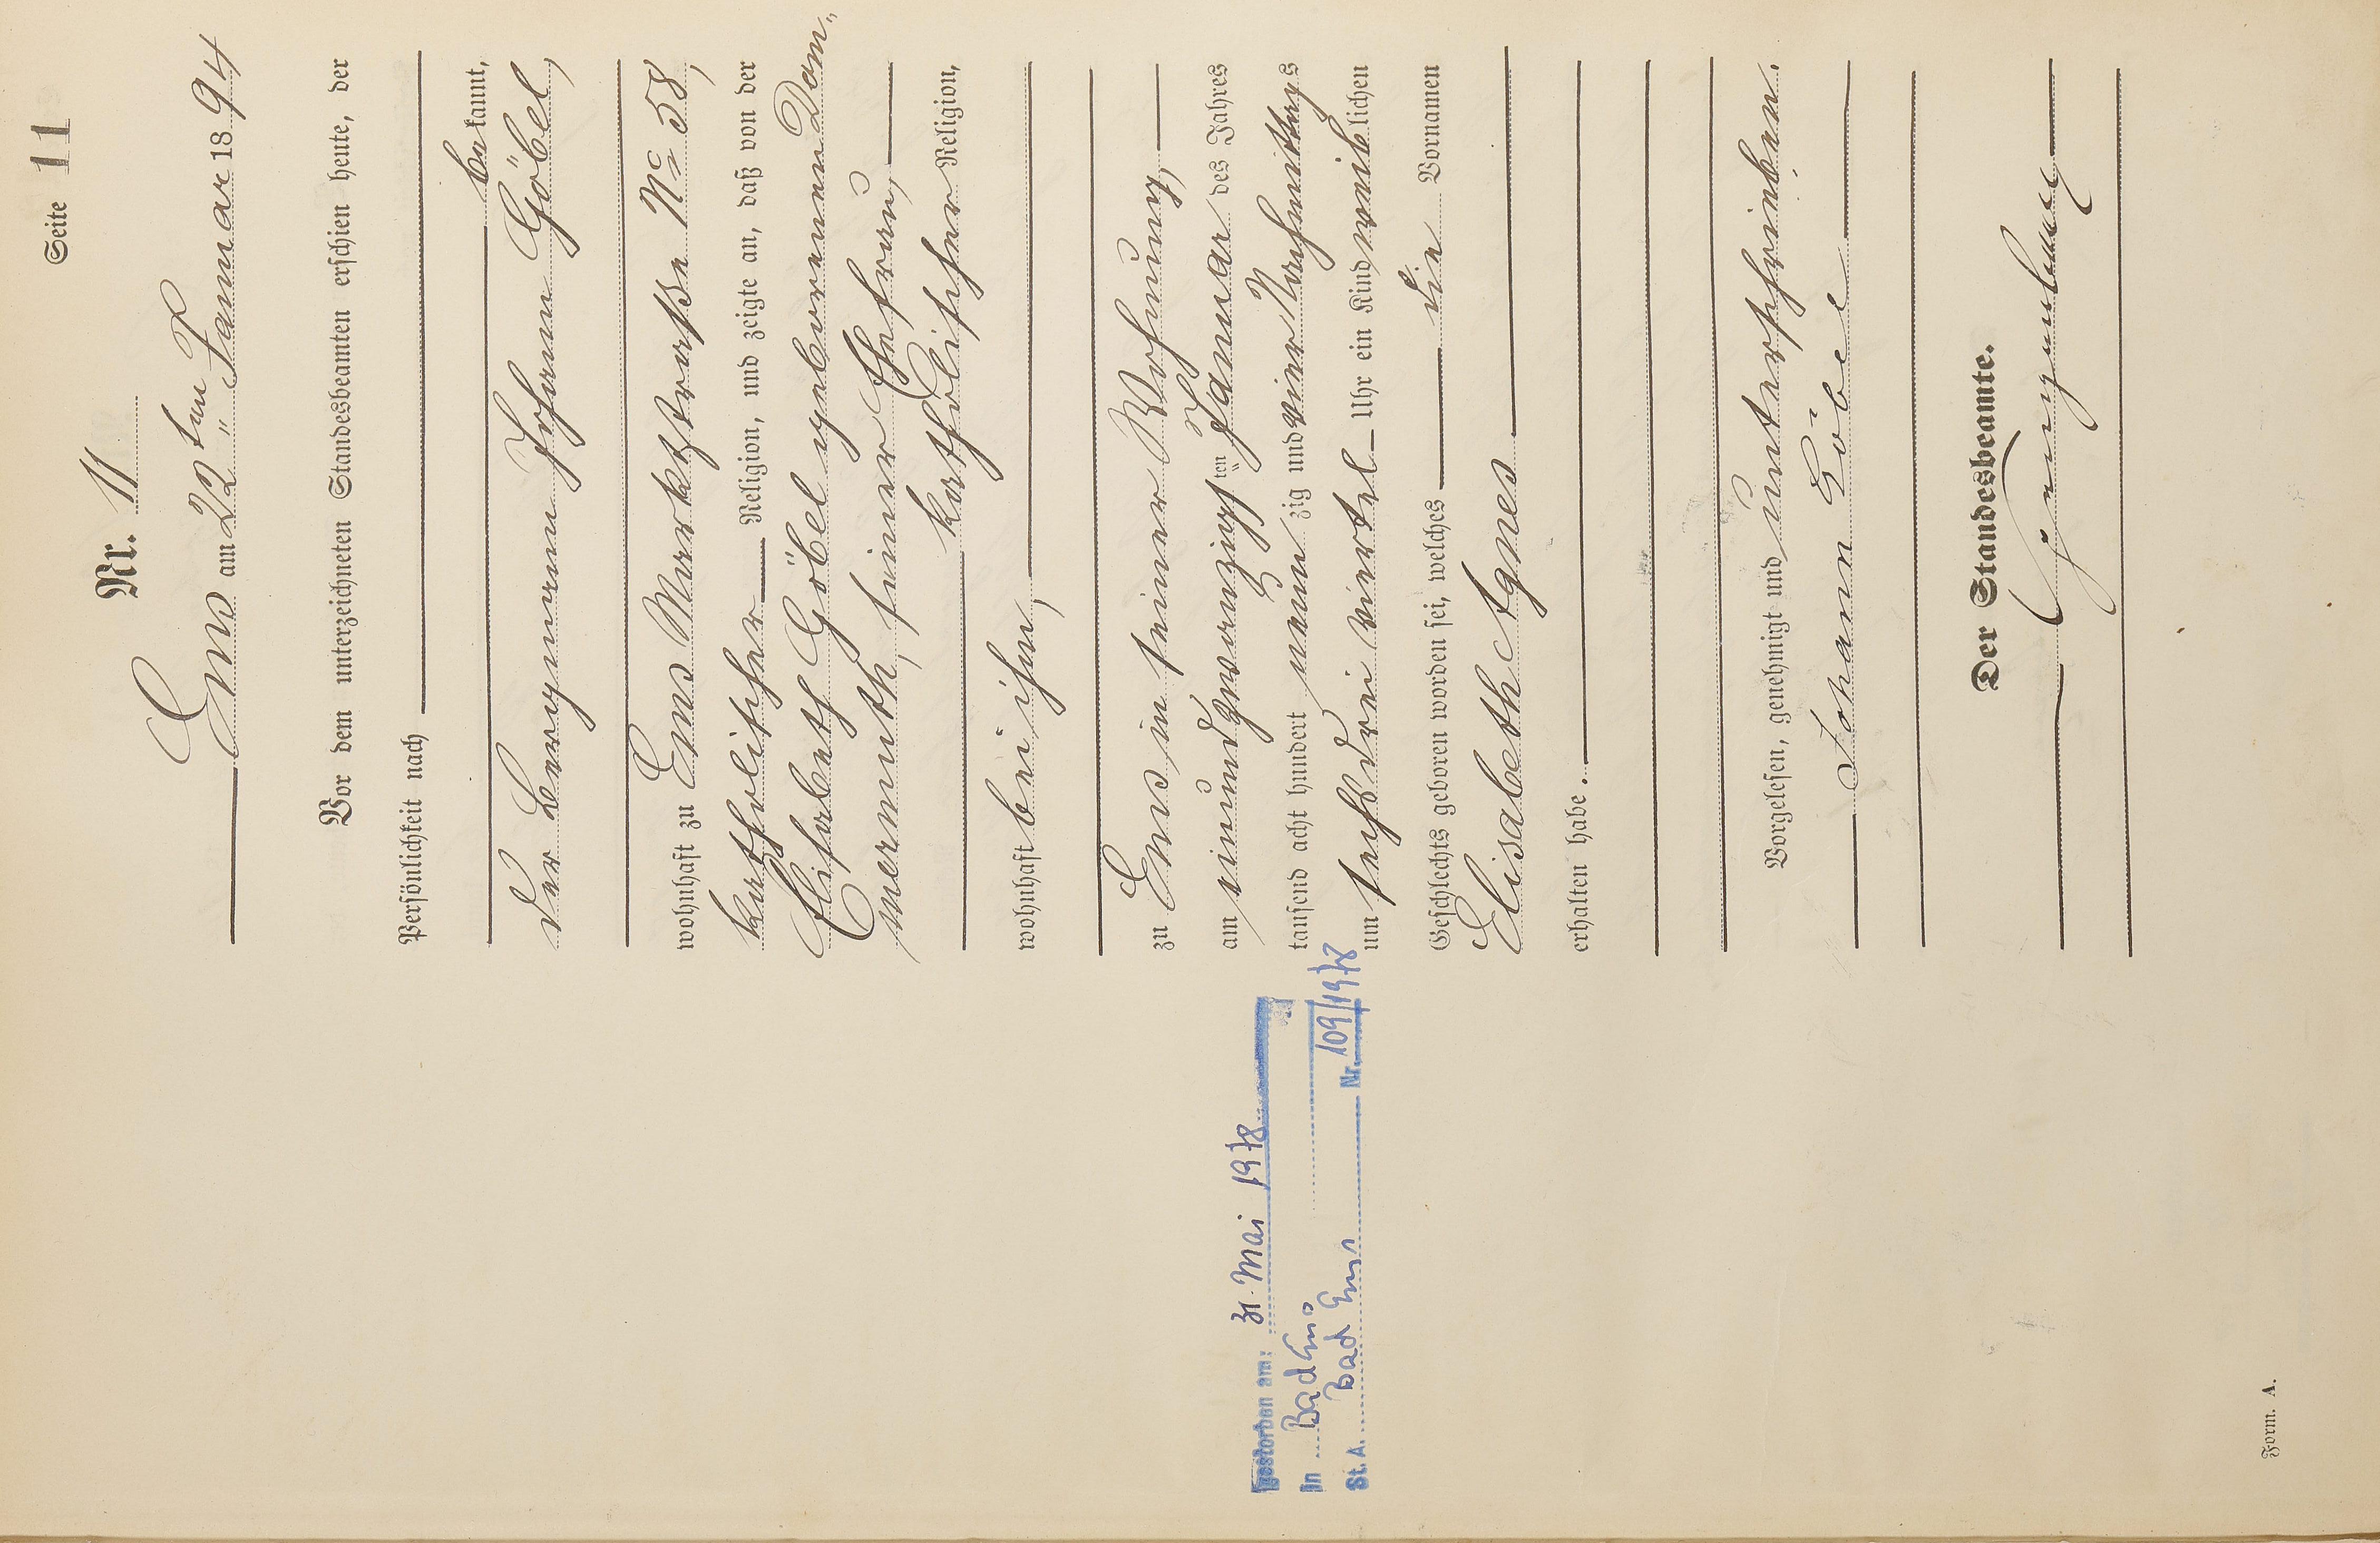 Seite 11
Nr. 11
Ems am 22ten Januar 1894
Vor dem unterzeichneten Standesbeamten erschien heute, der
Persönlichkeit nach
bekannt,
der Bergmann Johann Göbel,
wohnhaft zu Ems Marktstraße No 58,
katholischer Religion, und zeigte an, daß von der
Elisabeth Göbel geborenen Dom„
mermuth, seiner Ehefrau,
katholischer Religion,
wohnhaft bei ihm,
zu Ems in seiner Wohnung,
am einundzwanzigsten Januar des Jahres
tausend acht hundert neunzig und vier Nachmittags
um sechs drei viertel Uhr ein Kind weiblichen
Geschlechts geboren worden sei, welches die Vornamen
Elisabeth Agnes
erhalten habe.
Vorgelesen, genehmigt und unterschrieben.
Johann Göbel
Der Standesbeamte.
gestorben am: 31. Mai 1978
in Bad Ems
St. A. Bad Ems Nr. 109/1978
Form. A.